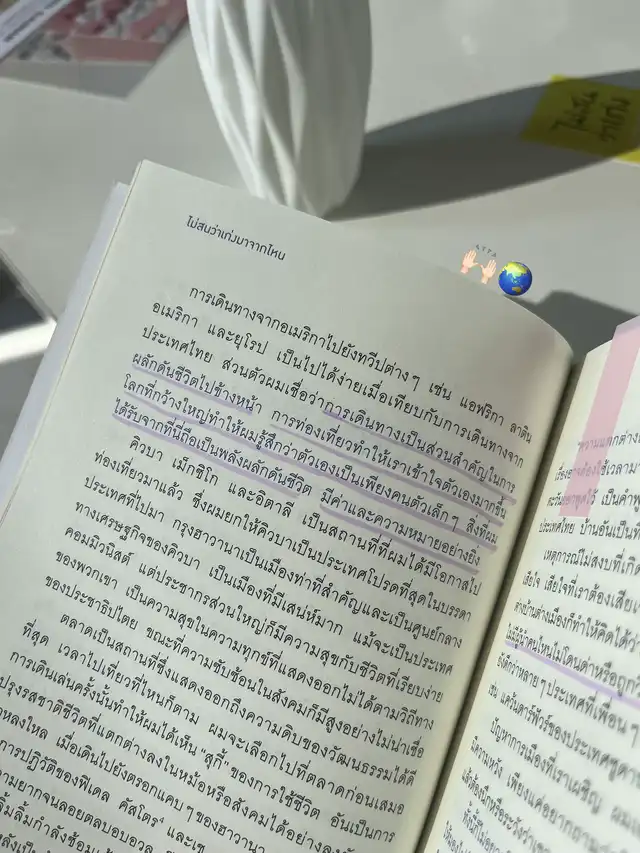 ไม่สนว่าเก่งมาจากไหน
ATTA
การเดินทางจากอเมริกาไปยังทวีปต่างๆ เช่น แอฟริกา ลาติน
อเมริกา และยุโรป เป็นไปได้ง่ายเมื่อเทียบกับการเดินทางจาก
ประเทศไทย ส่วนตัวผมเชื่อว่าการเดินทางเป็นส่วนสำคัญในการ
ผลักดันชีวิตไปข้างหน้า การท่องเที่ยวทำให้เราเข้าใจตัวเองมากขึ้น
โลกที่กว้างใหญ่ทำให้ผมรู้สึกว่าตัวเองเป็นเพียงคนตัวเล็กๆ สิ่งที่ผม
ได้รับจากที่นี่ถือเป็นพลังผลักดันชีวิต มีค่าและความหมายอย่างยิ่ง
คิวบา เม็กซิโก และอิตาลี เป็นสถานที่ที่ผมได้มีโอกาสไป
ท่องเที่ยวมาแล้ว ซึ่งผมยกให้คิวบาเป็นประเทศโปรดที่สุดในบรรดา
ประเทศที่ไปมา กรุงฮาวานาเป็นเมืองท่าที่สำคัญและเป็นศูนย์กลาง
ทางเศรษฐกิจของคิวบา เป็นเมืองที่มีเสน่ห์มาก แม้จะเป็นประเทศ
คอมมิวนิสต์ แต่ประชากรส่วนใหญ่ก็มีความสุขกับชีวิตที่เรียบง่าย
ของพวกเขา เป็นความสุขในความทุกข์ที่แสดงออกไม่ได้ตามวิถีทาง
ของประชาธิปไตย ขณะที่ความซับซ้อนในสังคมก็มีสูงอย่างไม่น่าเชื่อ
ตลาดเป็นสถานที่ซึ่งแสดงออกถึงความดิบของวัฒนธรรมได้ดี
ที่สุด เวลาไปเที่ยวที่ไหนก็ตาม ผมจะเลือกไปที่ตลาดก่อนเสมอ
การเดินเล่นครั้งนั้นทำให้ผมได้เห็น "สุกี้" ของการใช้ชีวิต อันเป็นการ
ปรุงรสชาติชีวิตที่แตกต่างลงในหม้อหรือสังคมได้อย่าง
หลงใหล เมื่อเดินไปยังตรอกแคบๆ ของฮาวานา
การปฏิวัติของฟิเดล คาสโตร⁴ และเช
จนลอยตลบอบอวล
กำลังซ้อม
"ความแตกต่าง
เป็นคำ
ประเทศไทย บ้านอันเป็นที่
เหตุการณ์ไม่สงบที่เกิด
เสียใจ เสียใจที่เราต้องเสีย
ต่างบ้านต่างเมืองก็ทำให้คิดได้ว่า
ไม่มีผู้นำคนไหนไม่โดนด่าหรือถูก
ยังดีกว่าหลายๆ ประเทศที่เพื่อนๆ
ปัญหาการเมืองที่เราเผชิญ
มีความหวัง เพียงแค่อยากถาม